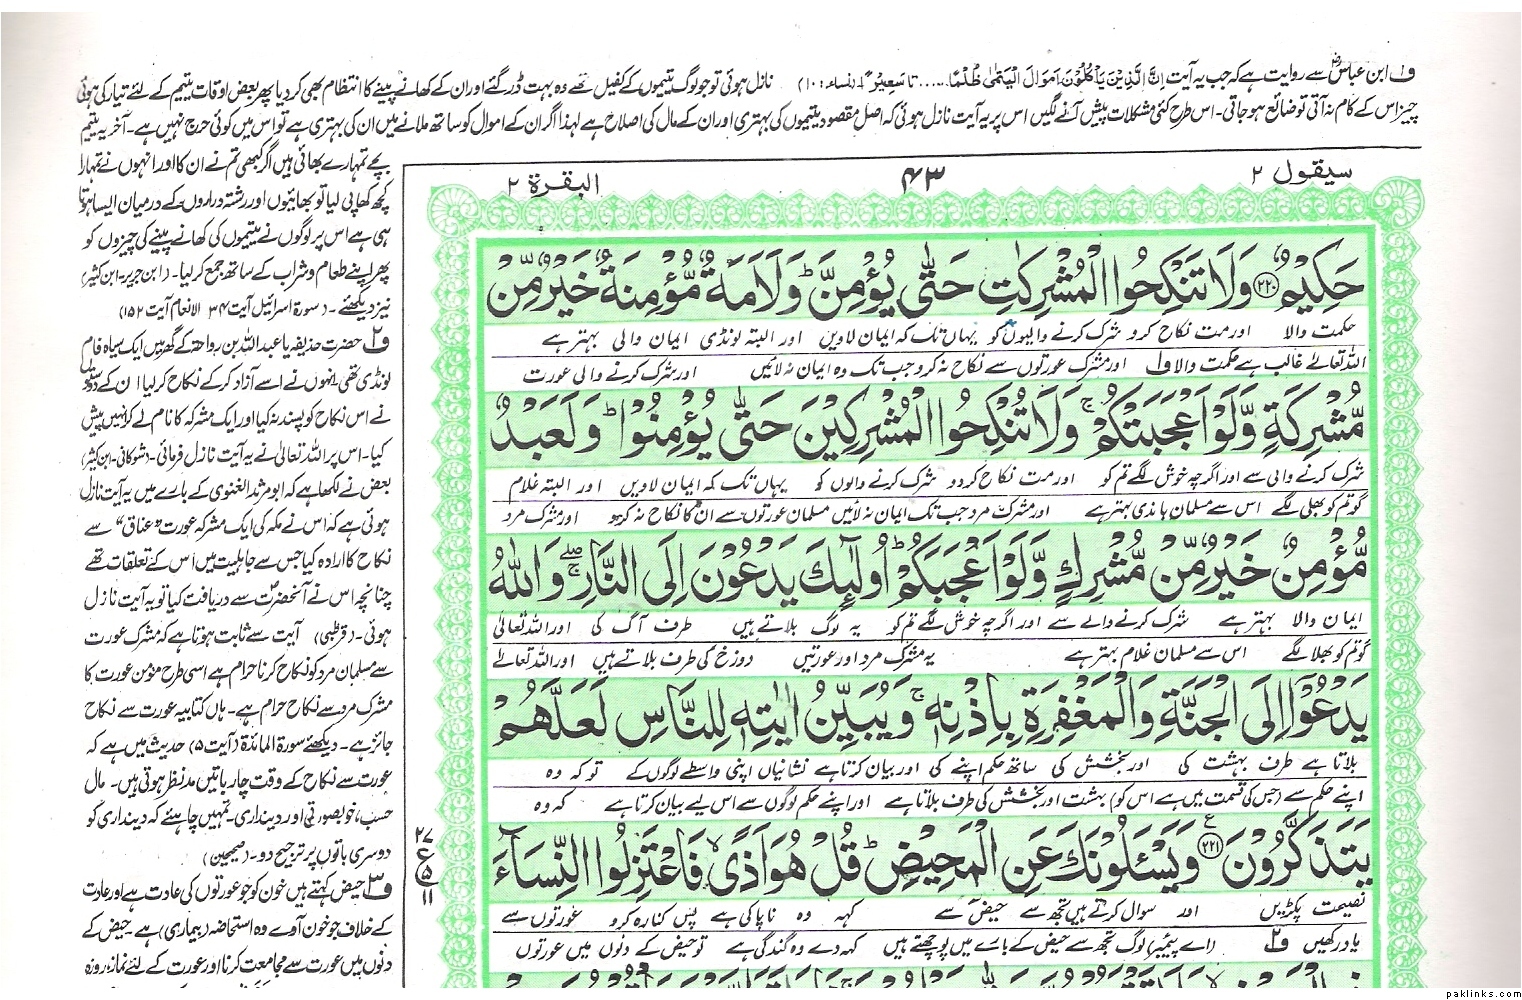 ف۱ ابن عباسؓ سے روایت ہے کہ جب یہ آیت اِنَّ الَّذِیْنَ یَاْکُلُوْنَ اَمْوَالَ الْیَتٰمٰی ظُلْمًا..... تا سَعِیْرًا (نساء: ۱۰) نازل ہوئی تو جو لوگ یتیموں کے کفیل تھے وہ بہت ڈر گئے اور ان کے کھانے پینے کا انتظام بھی کر دیا پھر بعض اوقات یتیم کے لئے تیار کی ہوئی
چیز اس کے کام نہ آتی تو ضائع ہو جاتی۔ اس طرح کئی مشکلات پیش آنے لگیں اس پر یہ آیت نازل ہوئی کہ اصل مقصود یتیموں کی بہتری اور ان کے مال کی اصلاح ہے لہذا اگر ان کے اموال کو ساتھ ملانے میں ان کی بہتری ہے تو اس میں کوئی حرج نہیں ہے۔ آخر یہ یتیم
بچے تمہارے بھائی ہیں اگر کبھی تم نے ان کا اور انہوں نے تمہارا
کچھ کھا پی لیا تو بھائیوں اور رشتہ داروں کے درمیان ایسا ہوتا
ہی ہے اس پر لوگوں نے یتیموں کی کھانے پینے کی چیزوں کو
پھر اپنے طعام و شراب کے ساتھ جمع کر لیا۔ (ابن جریر۔ ابن کثیر)
نیز دیکھئے۔ (سورۃ اسرائیل آیت ۳۴ الانعام آیت ۱۵۲)
ف۲ حضرت حذیفہ یا عبداللہ بن رواحہ کے گھر میں ایک سیاہ فام
لونڈی تھی انہوں نے اسے آزاد کر کے نکاح کر لیا ان کے دوستوں
نے اس نکاح کو پسند نہ کیا اور ایک مشرکہ کا نام لے کر انہیں پیش
کیا۔ اس پر اللہ تعالیٰ نے یہ آیت نازل فرمائی۔ (شوکانی۔ ابن کثیر)
بعض نے لکھا ہے کہ ابو مرثد الغنوی کے بارے میں یہ آیت نازل
ہوئی ہے کہ اس نے مکہ کی ایک مشرکہ عورت "عناق" سے
نکاح کا ارادہ کیا جس سے جاہلیت میں اس کے تعلقات تھے
چنانچہ اس نے آنحضرتؐ سے دریافت کیا تو یہ آیت نازل
ہوئی۔ (قرطبی) آیت سے ثابت ہوتا ہے کہ مشرک عورت
سے مسلمان مرد کو نکاح کرنا حرام ہے اسی طرح مؤمن عورت کا
مشرک مرد سے نکاح حرام ہے۔ ہاں کتابیہ عورت سے نکاح
جائز ہے۔ دیکھئے سورۃ المائدۃ (آیت ۵) حدیث میں ہے کہ
عورت سے نکاح کے وقت چار باتیں مد نظر ہوتی ہیں۔ مال
حسب، خوبصورتی اور دینداری۔ تمہیں چاہئے کہ دینداری کو
دوسری باتوں پر ترجیح دو۔ (صحیحین)
ف۳ حیض کہتے ہیں خون کو جو عورتوں کی عادت ہے اور عادت
کے خلاف جو خون آوے وہ استحاضہ (بیماری) ہے۔ حیض کے
دنوں میں عورت سے مجامعت کرنا اور عورت کے لئے نماز، روزہ
سیقول ۲ ۴۳ البقرۃ ۲
حَكِيْمٌ ﴿۲۲۰﴾ وَلَا تَنْكِحُوا الْمُشْرِكٰتِ حَتّٰى يُؤْمِنَّ ؕ وَلَاَمَةٌ مُّؤْمِنَةٌ خَيْرٌ مِّنْ
حکمت والا اور مت نکاح کرو شرک کرنے والیوں کو یہاں تک کہ ایمان لاویں اور البتہ لونڈی ایمان والی بہتر ہے
اللہ تعالےٰ غالب ہے حکمت والا ف۱ اور مشرک عورتوں سے نکاح نہ کرو جب تک وہ ایمان نہ لائیں اور شرک کرنے والی عورت
مُّشْرِكَةٍ وَّلَوْ اَعْجَبَتْكُمْ ۚ وَلَا تُنْكِحُوا الْمُشْرِكِيْنَ حَتّٰى يُؤْمِنُوْا ؕ وَلَعَبْدٌ
شرک کرنے والی سے اور اگرچہ خوش لگے تم کو اور مت نکاح کر دو شرک کرنے والوں کو یہاں تک کہ ایمان لاویں اور البتہ غلام
گو تم کو بھلی لگے اس سے مسلمان باندی بہتر ہے اور مشرک مرد جب تک ایمان نہ لائیں مسلمان عورتوں سے ان کا نکاح نہ کرو اور مشرک مرد
مُّؤْمِنٌ خَيْرٌ مِّنْ مُّشْرِكٍ وَّلَوْ اَعْجَبَكُمْ ؕ اُولٰٓئِكَ يَدْعُوْنَ اِلَى النَّارِ ۖۚ وَاللّٰهُ
ایمان والا بہتر ہے شرک کرنے والے سے اور اگرچہ خوش لگے تم کو یہ لوگ بلاتے ہیں طرف آگ کی اور اللہ تعالیٰ
گو تم کو بھلا لگے اس سے مسلمان غلام بہتر ہے یہ مشرک مرد اور عورتیں دوزخ کی طرف بلاتے ہیں اور اللہ تعالےٰ
يَدْعُوْٓا اِلَى الْجَنَّةِ وَالْمَغْفِرَةِ بِاِذْنِهٖ ۚ وَيُبَيِّنُ اٰيٰتِهٖ لِلنَّاسِ لَعَلَّهُمْ
بلاتا ہے طرف بہشت کی اور بخشش کی ساتھ حکم اپنے کی اور بیان کرتا ہے نشانیاں اپنی واسطے لوگوں کے تو کہ وہ
اپنے حکم سے (جس کی قسمت میں ہے اس کو) بہشت اور بخشش کی طرف بلاتا ہے اور اپنے حکم لوگوں سے اس لیے بیان کرتا ہے کہ وہ
يَتَذَكَّرُوْنَ ﴿۲۲۱﴾ ع وَيَسْـَٔلُوْنَكَ عَنِ الْمَحِيْضِ ؕ قُلْ هُوَ اَذًى ۙ فَاعْتَزِلُوا النِّسَآءَ
نصیحت پکڑیں اور سوال کرتے ہیں تجھ سے حیض سے کہہ وہ ناپاکی ہے پس کنارہ کرو عورتوں سے
یاد رکھیں ف۲ (اے پیغمبرؐ) لوگ تجھ سے حیض کے باب میں پوچھتے ہیں کہہ دے وہ گندگی ہے تو حیض کے دنوں میں عورتوں
۲۷
ع
۵
۱۱
paklinks.com